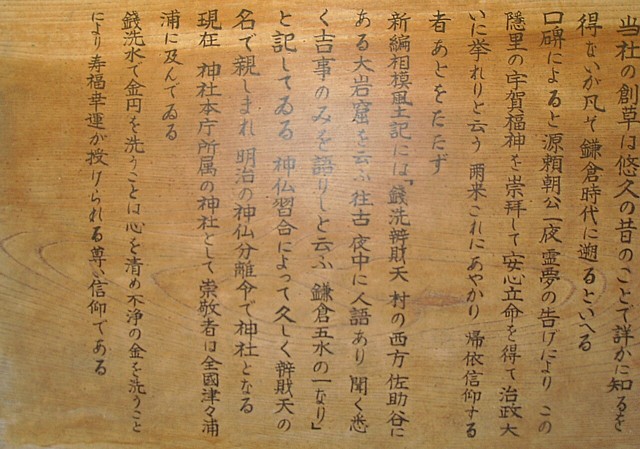 当社の創草は悠久の昔のことで詳かに知るを
得ないが凡そ鎌倉時代に遡るといへる
口碑によると源頼朝公一夜霊夢の告げにより この
隠里の宇賀福神を崇拝して安心立命を得て治政大
いに挙れりと云う 爾来これにあやかり 帰依信仰する
者あとをたたず
新編相模風土記には「銭洗辨財天 村の西方佐助谷に
ある大岩窟を云ふ往古夜中に人語あり 聞く悉
く吉事のみを語りしと云ふ 鎌倉五水の一なり」
と記してゐる 神仏習合によって久しく辨財天の
名で親しまれ 明治の神仏分離令で神社となる
現在 神社本庁所属の神社として崇敬者は全國津々浦
浦に及んでゐる
銭洗水で金円を洗うことは心を清め不浄の金を洗うこと
により寿福幸運が授けられる尊い信仰である